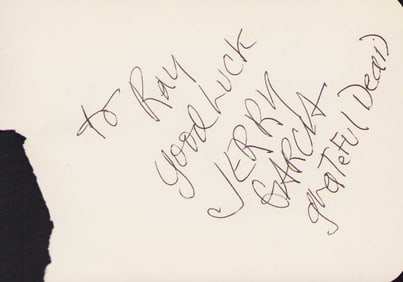 to Ray
good Luck
JERRY
GARCIA
grateful Dead